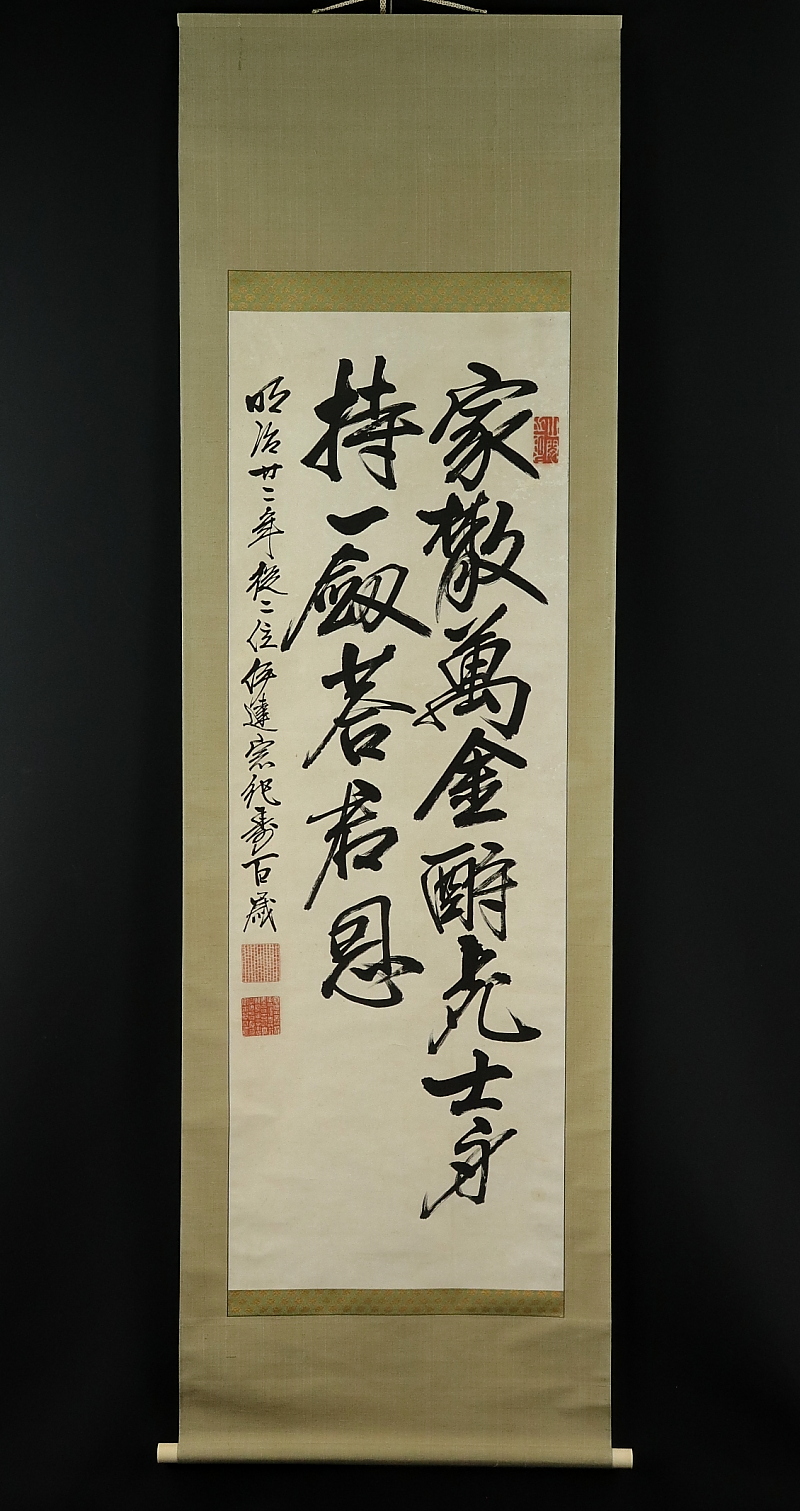 家散萬金酬死士身
持一劔荅君恩
明治廿二年從二位伊達宗紀壽百歳